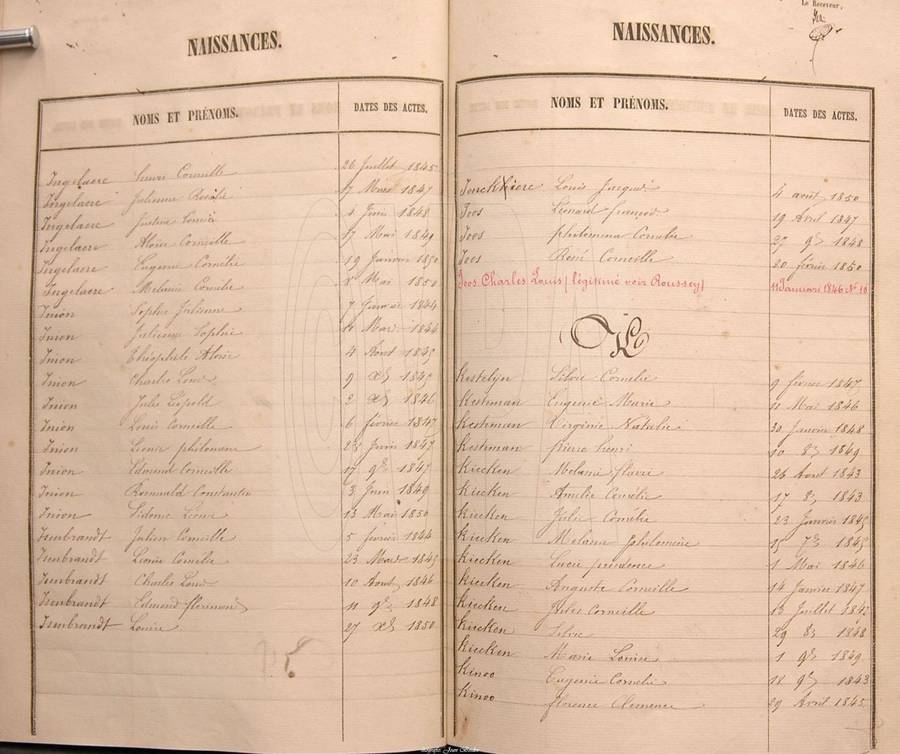 Le Receveur,
NAISSANCES.
NOMS ET PRÉNOMS. DATES DES ACTES.
Ingelaere Henri Corneille 26 Juillet 1845
Ingelaere Julienne Rosalie 17 Mars 1847
Ingelaere Justine Louise 4 Juin 1848
Ingelaere Aloïse Corneille 17 Mai 1849
Ingelaere Eugenie Cornélie 19 Janvier 1850
Ingelaere Melanie Cornelie 8 Mai 1850
Inion Sophie Julienne 7 Janvier 1844
Inion Julienne Sophie 4 Mars 1844
Inion Théophile Aloïse 4 Aout 1845
Inion Charles Louis 9 Xbre 1845
Inion Jules Léopold 2 Xbre 1846
Inion Louis Corneille 6 février 1847
Inion Leonie philomene 28 Juin 1847
Inion Edmond Corneille 17 9bre 1847
Inion Romuald Constantin 3 Juin 1849
Inion Sidonie Leonie 13 Mai 1850
Isenbrandt Julien Corneille 5 février 1844
Isenbrandt Leonie Cornélie 23 Mars 1845
Isenbrandt Charles Louis 10 Aout 1846
Isenbrandt Edmond florimond 11 9bre 1848
Isenbrandt Louise 27 Xbre 1850
NAISSANCES.
NOMS ET PRÉNOMS. DATES DES ACTES.
Jonckhiere Louis Jacques 4 août 1850
Joos Léonard françois 19 Avril 1847
Joos philomena Cornelie 27 9bre 1848
Joos René Corneille 20 février 1850
Joos Charles Louis (légitimé voir Roussey) 11 Januari 1846 N° 10
K
Kestelijn Silvie Cornelie 9 février 1847
Kesteman Eugenie Marie 11 Mai 1846
Kesteman Virginie Natalie 30 Janvier 1848
Kesteman pierre henri 10 8bre 1849
Kiecken Melanie flavie 26 Avril 1843
Kiecken Amelie Cornélie 17 8bre 1843
Kiecken Julie Cornélie 23 Janvier 1845
Kiecken Melanie philomène 15 7bre 1845
Kiecken Lucie prudence 1 Mai 1846
Kiecken Auguste Corneille 14 Janvier 1847
Kiecken Jules Corneille 12 Juillet 1847
Kiecken Silvie 29 8bre 1848
Kiecken Marie Louise 1 9bre 1849
Kinoo Eugenie Cornelie 18 9bre 1843
Kinoo florence Clemence 29 Avril 1845